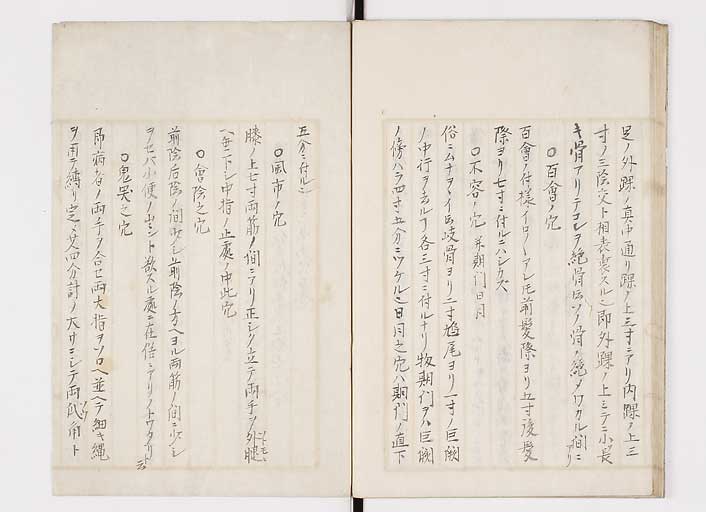 足ノ外踝ノ真中通リ踝ノ上三寸ニアリ内踝ノ上三
寸ノ三陰交ト相表裏スル也即外踝ノ上ミテニ小長
キ骨アリテコレヲ絶骨云ソノ骨ノ絶メワカル間ニ
○百會ノ穴
百會ノ付様イロ〳〵アレ𪜈前髪際ヨリ五寸後髪
際ヨリ七寸ニ付ルニハシカズ
○不容ノ穴 并期門日月
俗ニムナヲト云岐骨ヨリ二寸鳩尾ヨリ一寸ノ巨闕
ノ中行ヲ去ル各三寸ニ付ルナリ期門ヲハ巨闕
ノ傍ハラ四寸五分ニツケル也日月之穴ハ期門ノ直下
五分ニ付ル也
○風市ノ穴
膝ノ上七寸両筋ノ間ニアリ正シク立テ両手ヲ外腿
ヘ垂下シ中指ノ止處ノ中此穴
○會陰之穴
前陰后陰ノ間前陰ノ方ヘヨル両筋ノ間ニ少シ
ヲセバ小便ノ出ント欲スル處ニ在俗ニアリノトワタリト云
○鬼哭之穴
即病者ノ両手ヲ合セ両大指ヲソロヘ並ヘテ細キ縄
ヲ用テ縛リ定メ艾四分計ノ大サニシテ両爪角ト